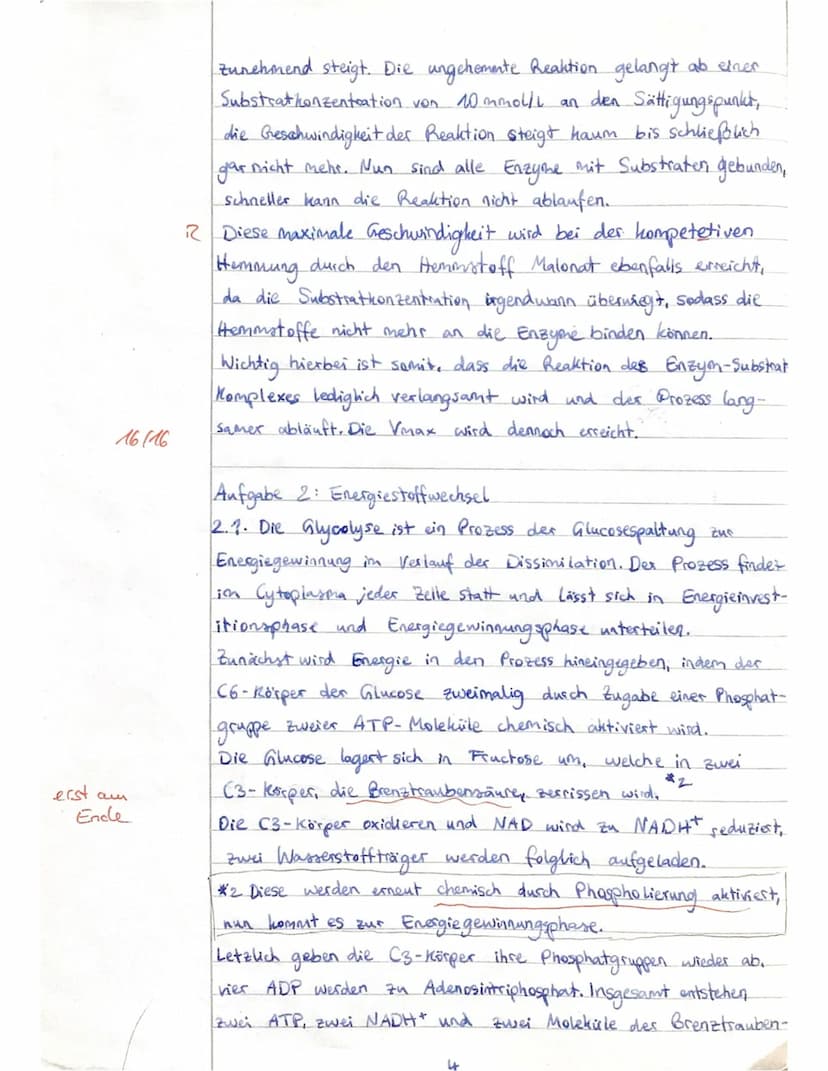 zunehmend steigt. Die ungehemmte Reaktion gelangt ab einer
Substratkonzentration von 10 mmol/L an den Sättigungspunkt,
die Geschwindigkeit der Reaktion steigt kaum bis schließlich
gar nicht mehr. Nun sind alle Enzyme mit Substraten gebunden,
schneller kann die Reaktion nicht ablaufen.
R Diese maximale Geschwindigkeit wird bei der kompetetiven
Hemmung durch den Hemmstoff Malonat ebenfalls erreicht,
da die Substratkonzentration irgendwann überwiegt, sodass die
Hemmstoffe nicht mehr an die Enzyme binden können.
Wichtig hierbei ist somit, dass die Reaktion des Enzym-Substrat
Komplexes lediglich verlangsamt wird und der Prozess lang-
samer abläuft. Die Vmax wird dennoch erreicht.
16/16
Aufgabe 2: Energiestoffwechsel
2.1. Die Glycolyse ist ein Prozess der Glucosespaltung zur
Energiegewinnung im Verlauf der Dissimilation. Der Prozess findet
im Cytoplasma jeder Zelle statt und lässt sich in Energieinvest-
itionsphase und Energiegewinnungsphase unterteilen.
Zunächst wird Energie in den Prozess hineingegeben, indem der
C6-Körper der Glucose zweimalig durch Zugabe einer Phosphat-
gruppe zweier ATP-Moleküle chemisch aktiviert wird.
Die Glucose lagert sich in Fructose um, welche in zwei
C3-Körper, die Brenztraubensäure, zerrissen wird. *2
erst am
Ende
Die C3-Körper oxidieren und NAD wird zu NADH+ reduziert,
zwei Wasserstoffträger werden folglich aufgeladen.
*2 Diese werden erneut chemisch durch Phospholierung aktiviert,
nun kommt es zur Energiegewinnungsphase.
Letzlich geben die C3-Körper ihre Phosphatgruppen wieder ab,
vier ADP werden zu Adenosintriphosphat. Insgesamt entstehen
zwei ATP, zwei NADH+ und zwei Moleküle der Brenztrauben-
4